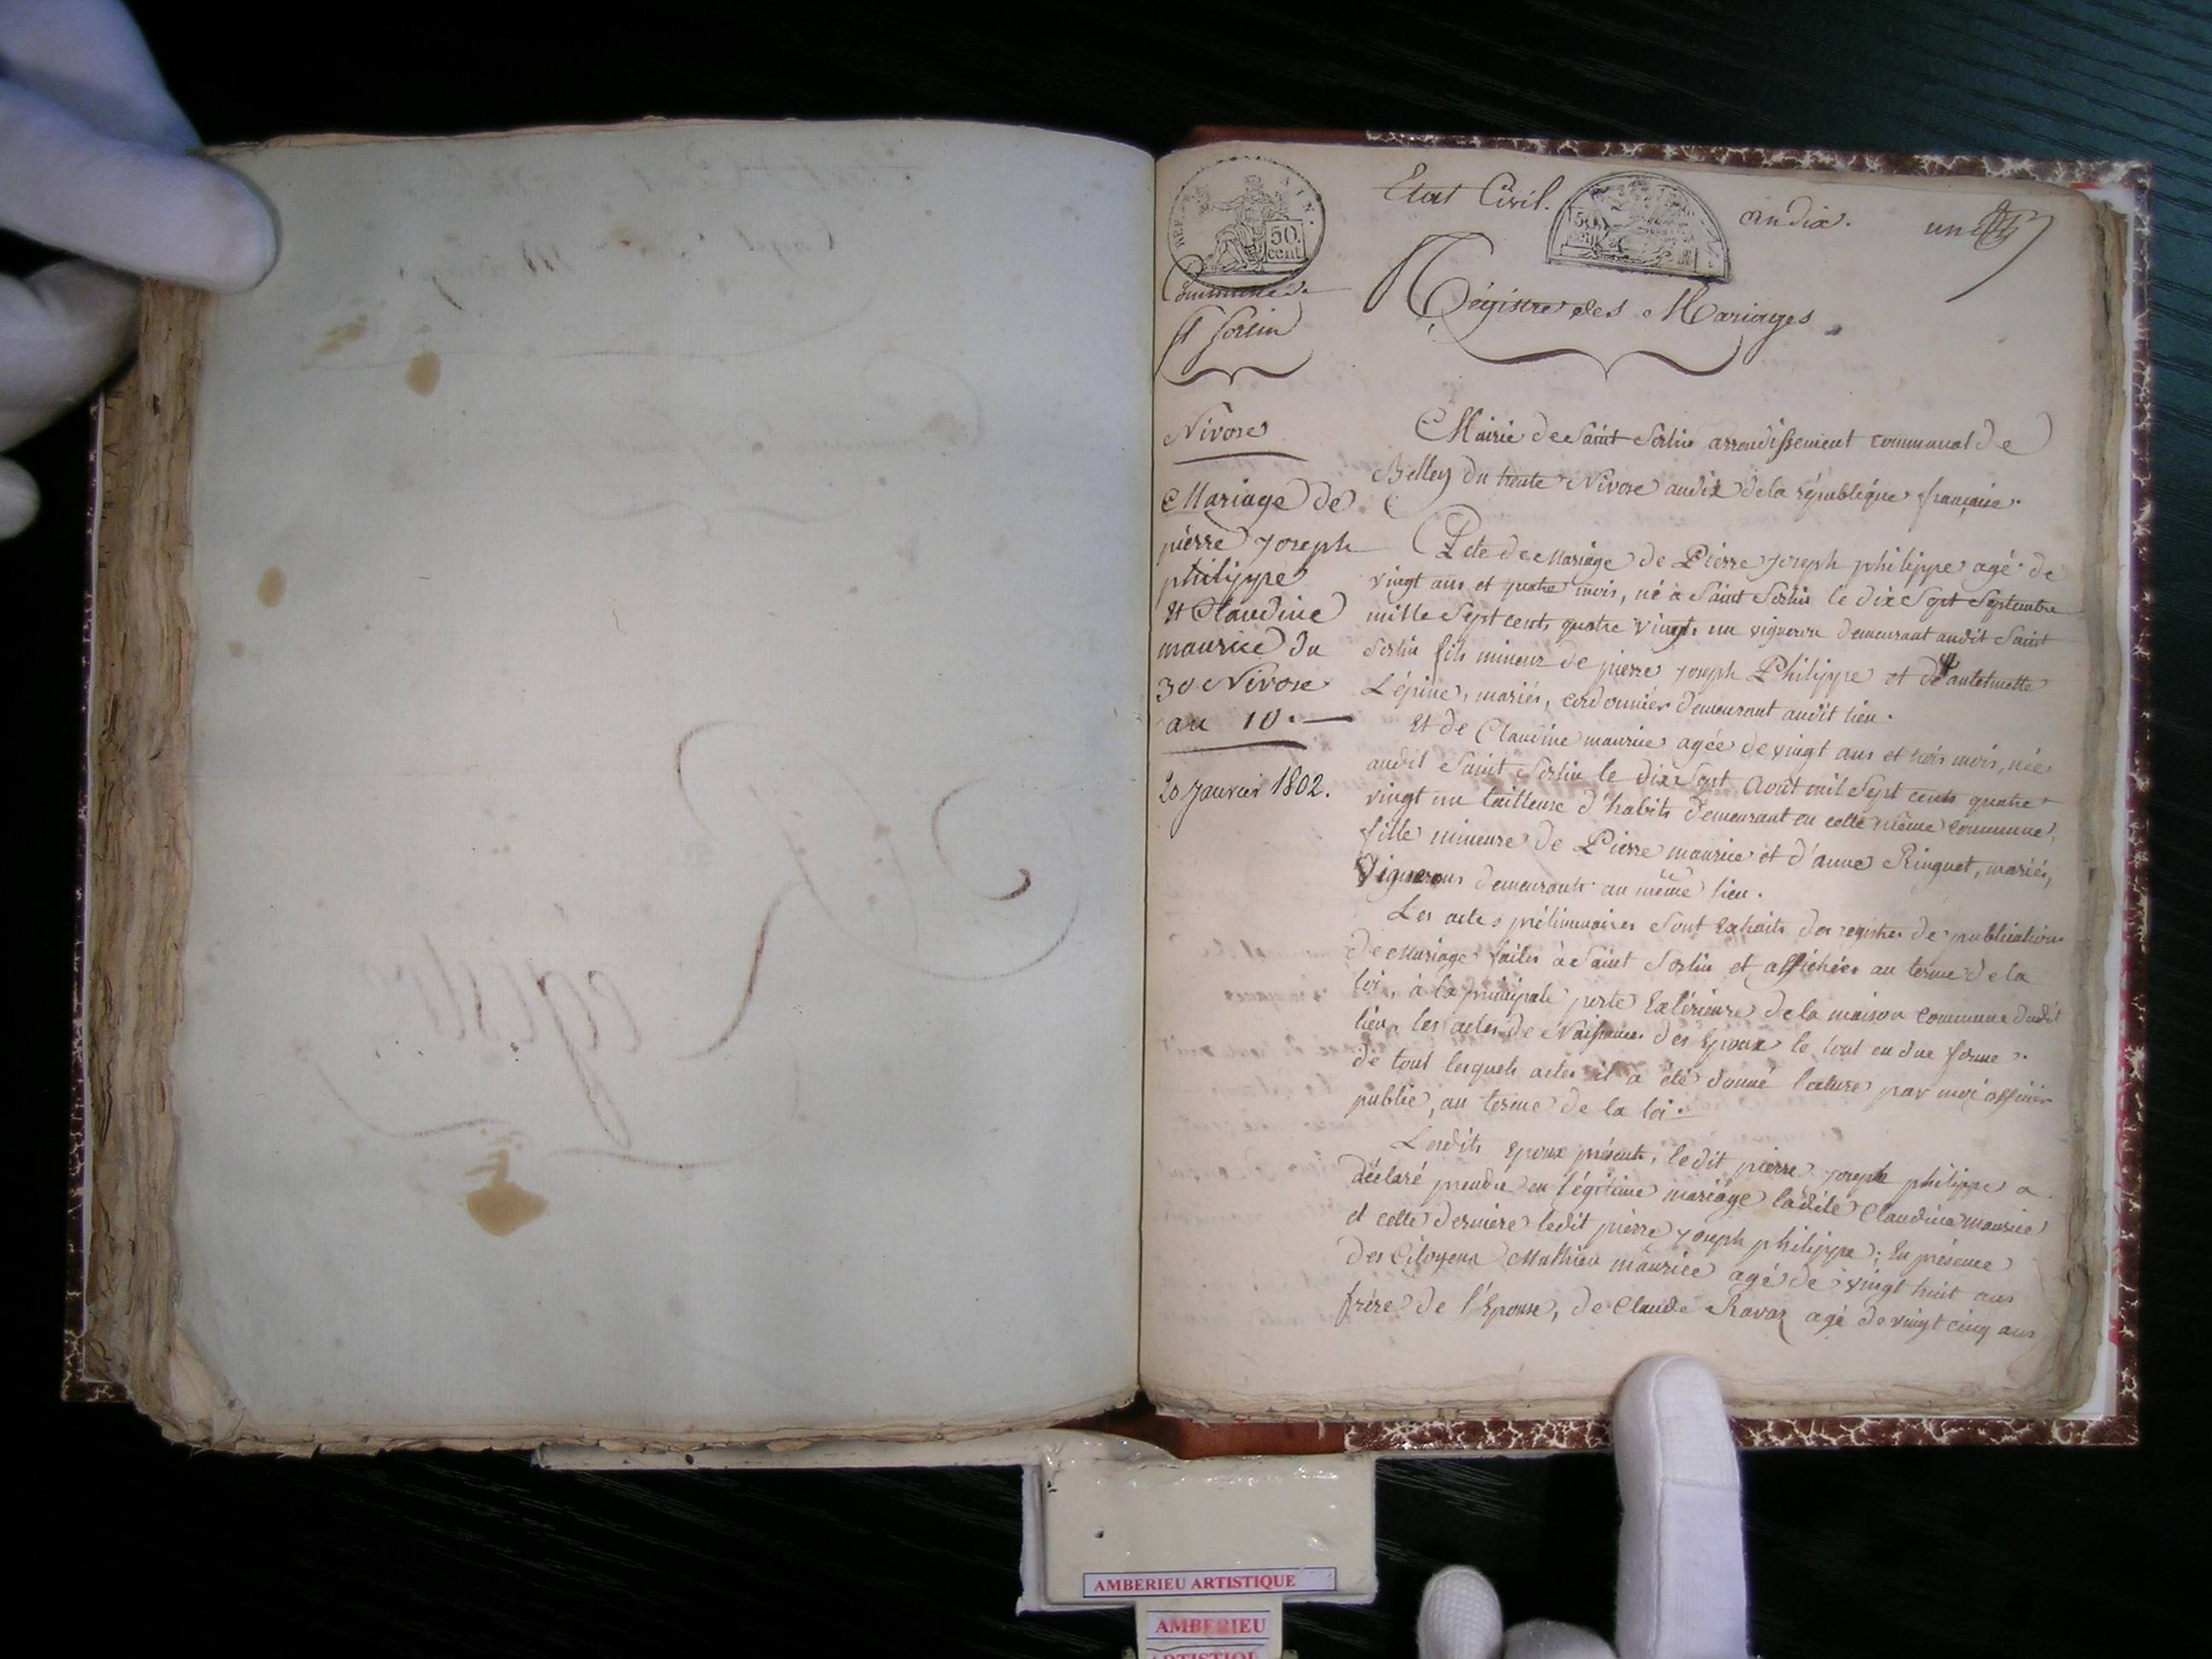 Etat Civil.
an dix.
un
REP.
50
cent
50
cent
Commune de
St Sorlin
Régistre des Mariages
Nivose
Mariage de
pierre Joseph
philippe
et Claudine
maurice du
30 Nivose
an 10.
20 Janvier 1802.
Mairie de Saint Sorlin arrondissement communal de
Belley du trente Nivose an dix de la république française.
Acte de Mariage de Pierre Joseph philippe agé de
vingt ans et quatre mois, né à Saint Sorlin le dix Sept Septembre
mille Sept cents quatre vingts un vigneron demeurant audit Saint
Sorlin fils mineur de pierre Joseph Philippe et de antelmette
Lépine, mariés, cordonnier demeurant audit lieu.
Et de Claudine maurice agée de vingt ans et trois mois, née
audit Saint Sorlin le dix Sept Août mil Sept cents quatre
vingt un tailleuse d'habits demeurant en cette même commune,
fille mineure de Pierre maurice et d'anne Ringuet, mariés,
Vignerons demeurants au même lieu.
Les actes préliminaires Sont Extraits des registres de publication
de Mariage faites à Saint Sorlin et affichées au terme de la
loi, à la principale porte Extérieure de la maison commune dudit
lieu, les actes de Naissance des Epoux le tout en due forme.
de tout lesquels actes il a été donné lecture par moi officier
public, au terme de la loi.
Lesdits Epoux présents, le dit pierre Joseph philippe a
déclaré prendre en légitime mariage ladite Claudine maurice
et cette dernière ledit pierre Joseph philippe; En présence
des Citoyens Mathieu maurice agé de vingt huit ans
frère de l'Epouse, de Claude Ravaz agé de vingt cinq ans
AMBERIEU ARTISTIQUE
AMBERIEU
ARTISTIQUE